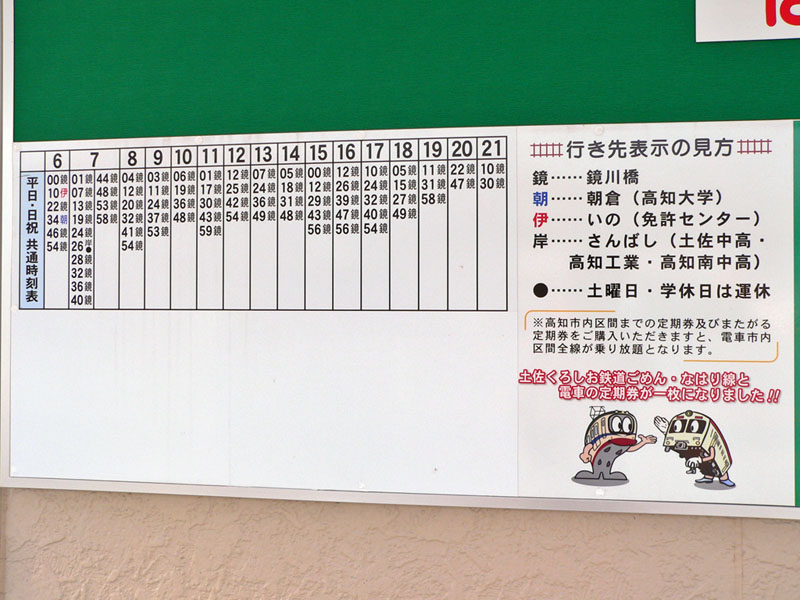 6 7 8 9 10 11 12 13 14 15 16 17 18 19 20 21
平日・日祝 共通時刻表
00鏡 01鏡 44鏡 04鏡 03鏡 06鏡 01鏡 12鏡 07鏡 05鏡 00鏡 12鏡 10鏡 05鏡 11鏡 22鏡 10鏡
10伊 07鏡 48鏡 12鏡 11鏡 19鏡 17鏡 25鏡 24鏡 18鏡 12鏡 26鏡 24鏡 15鏡 31鏡 47鏡 30鏡
22鏡 13鏡 53鏡 20鏡 鏡 36鏡 30鏡 42鏡 36鏡 31鏡 鏡 39鏡 32鏡 27鏡 58鏡
34朝 19鏡 58鏡 32鏡 37鏡 48鏡 43鏡 54鏡 49鏡 48鏡 43鏡 47鏡 40鏡 49鏡
46鏡 24鏡 41鏡 53鏡 59鏡 56鏡 56鏡 54鏡
54鏡 26岸● 54鏡
28鏡
32鏡
36鏡
40鏡
行き先表示の見方
鏡……鏡川橋
朝……朝倉（高知大学）
伊……いの（免許センター）
岸……さんばし（土佐中高・
高知工業・高知南中高）
●……土曜日・学休日は運休
※高知市内区間までの定期券及びまたがる
定期券をご購入いただきますと、電車市内
区間全線が乗り放題となります。
土佐くろしお鉄道ごめん・なはり線と
電車の定期券が一枚になりました!!